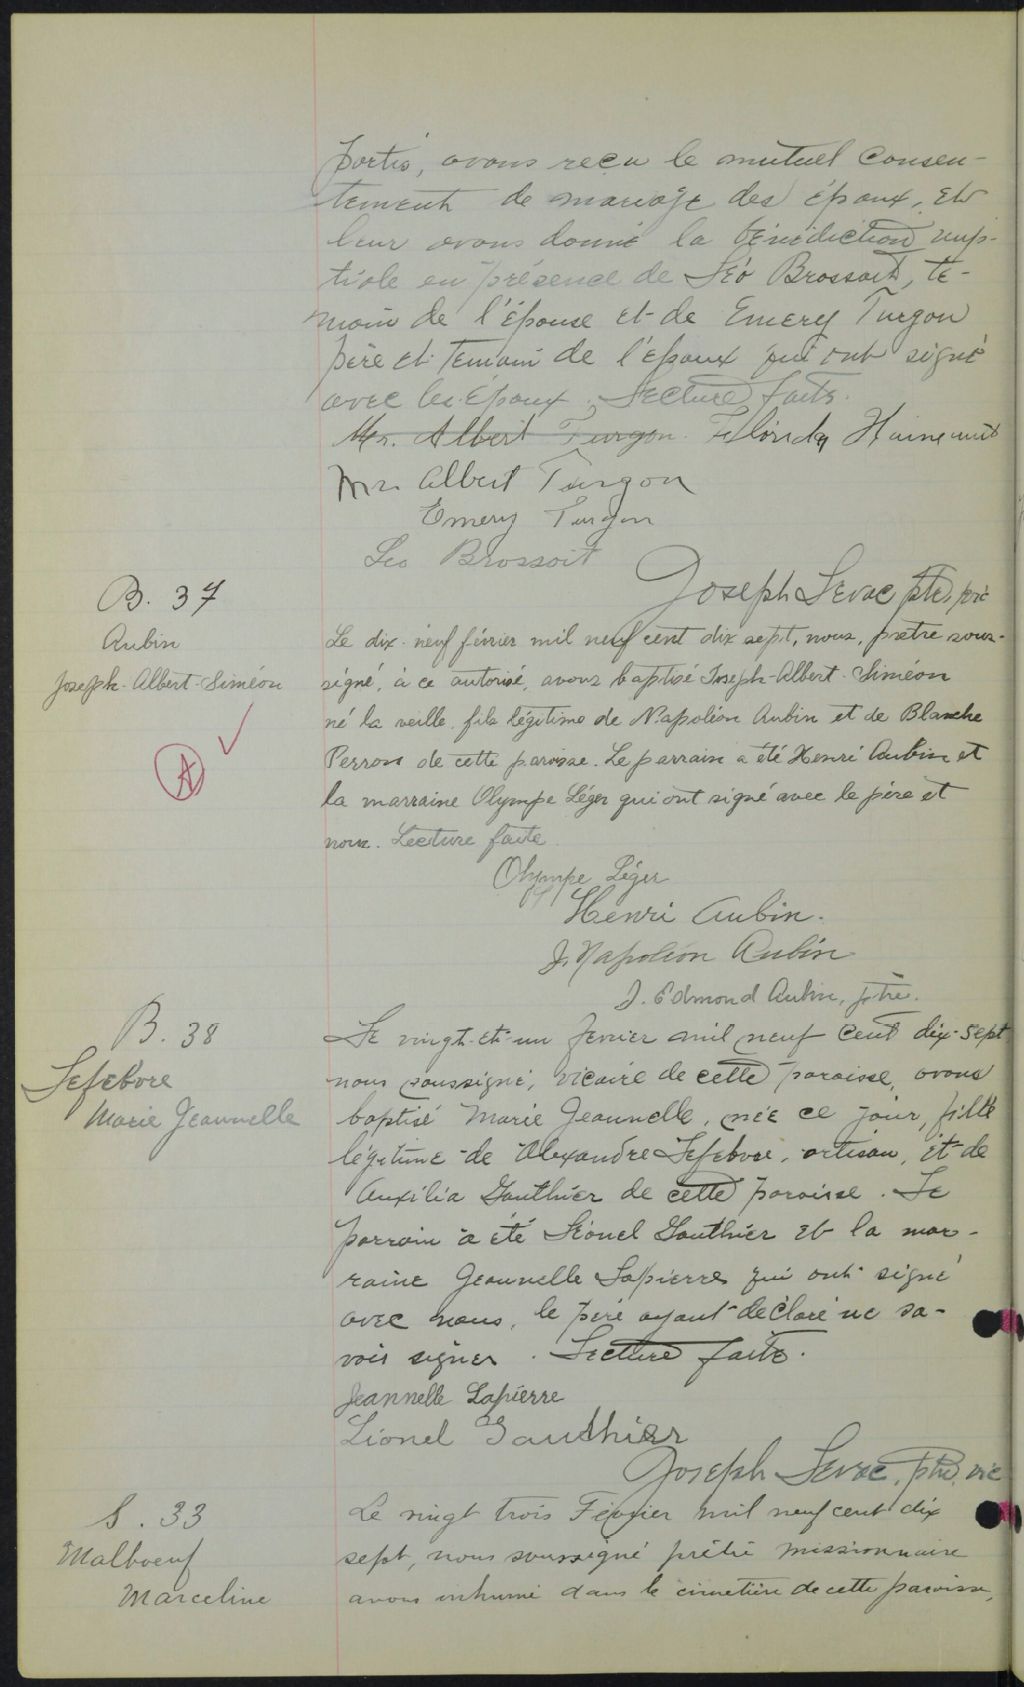 portis, avons reçu le mutuel consen-
tement de mariage des époux, et
leur avons donné la bénédiction nup-
tiale en présence de Léo Brossoit, té-
moin de l'épouse et de Emery Turgon
père et témoin de l'époux qui ont signé
avec les époux. Lecture faite.
Mr. Albert Turgon. Florida
Mr. Albert Turgon
Emery Turgon
Leo Brossoit
Joseph Levac ptre, vic
B. 37
Aubin
Joseph-Albert-Siméon
A
Le dix-neuf février mil neuf cent dix sept, nous, prêtre sous-
signé, à ce autorisé, avons baptisé Joseph-Albert-Siméon
né la veille, fils légitime de Napoléon Aubin et de Blanche
Perron de cette paroisse. Le parrain a été Henri Aubin et
la marraine Olympe Léger qui ont signé avec le père et
nous. Lecture faite
Olympe Léger
Henri Aubin.
J. Napoléon Aubin
J. Edmond Aubin, ptre.
B. 38
Lefebvre
Marie Jeannelle
Le vingt-et-un fevrier mil neuf cent dix-sept
nous soussigné, vicaire de cette paroisse, avons
baptisé Marie Jeannelle, née ce jour, fille
légitime de Alexandre Lefebvre, artisan, et de
Auxilia Gauthier de cette paroisse. Le
parrain a été Léonel Gauthier et la mar-
raine Jeannelle Lapierre qui ont signé
avec nous, le père ayant déclaré ne sa-
voir signer. Lecture faite.
Jeannelle Lapierre
Lionel Gauthier
Joseph Levac, ptre, vic
S. 33
Malboeuf
Marceline
Le vingt trois Février mil neuf cent dix
sept, nous soussigné prêtre missionnaire
avons inhumé dans le cimetière de cette paroisse,